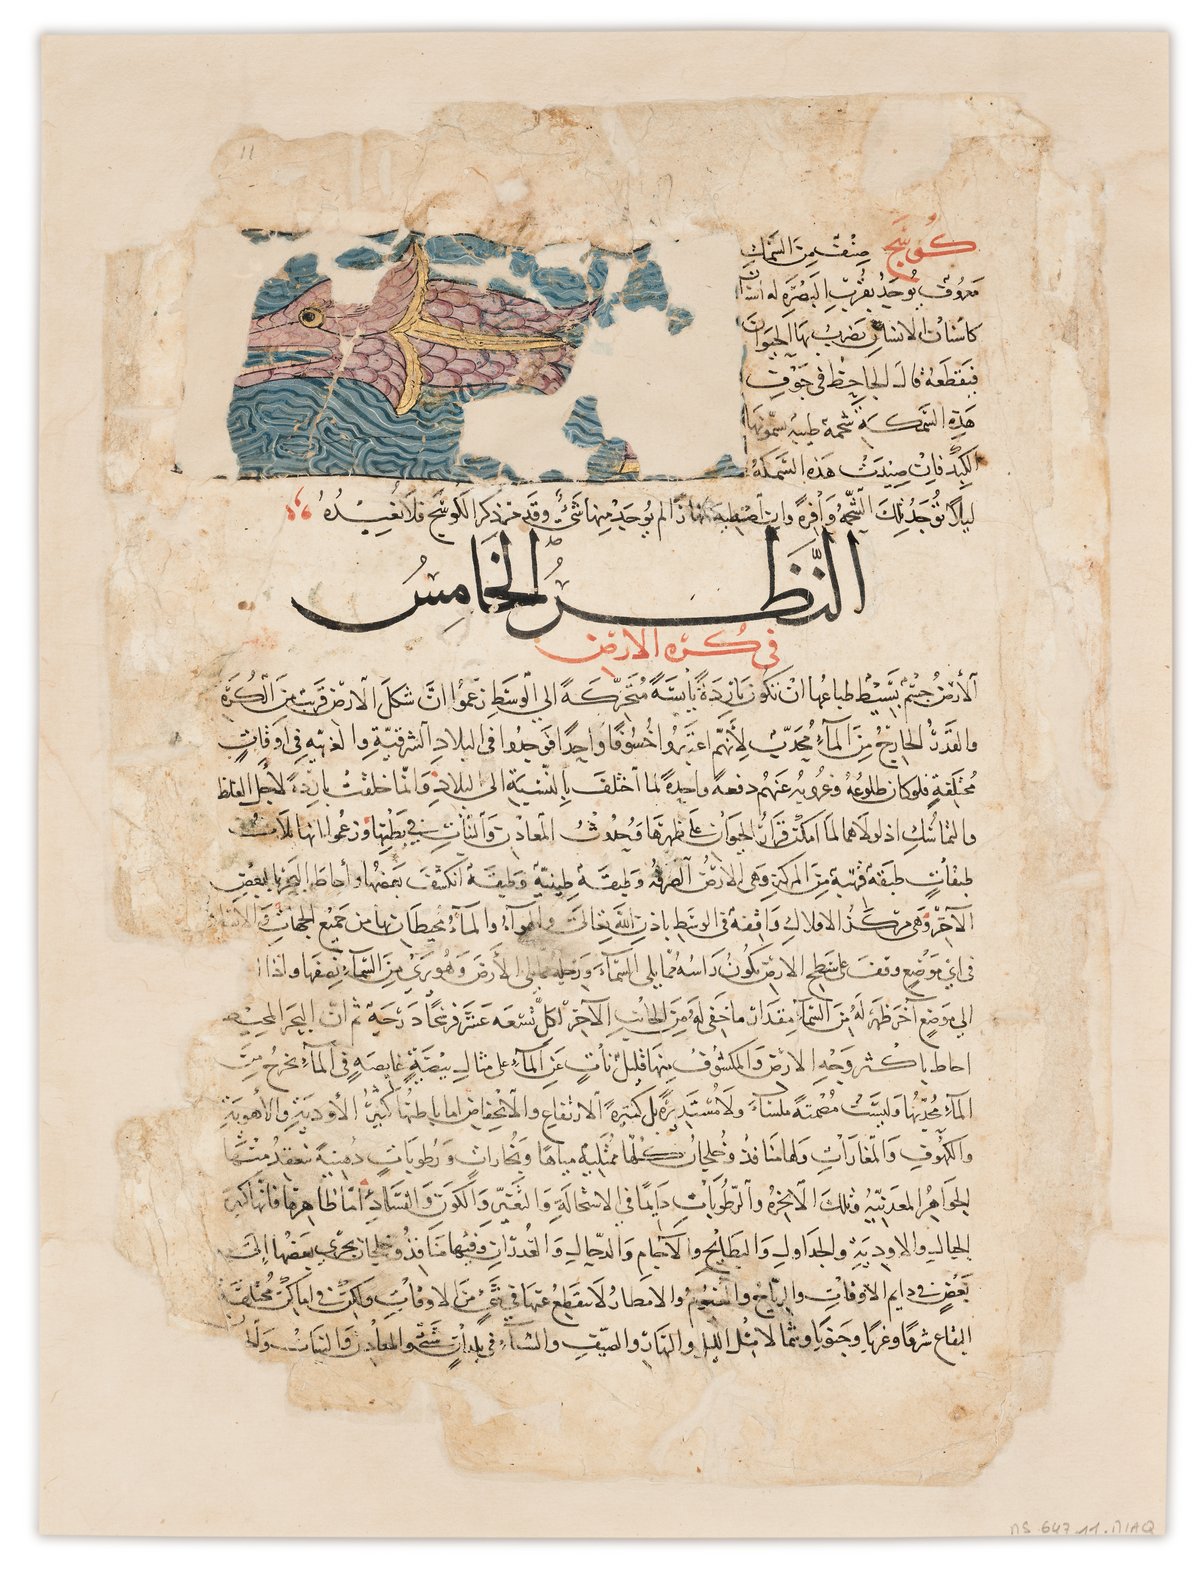 11
كوسج صنف من السمك
معروف يوجد بقرب البصرة له اسنان
كاسنان الانسان يضرب بها الحيوان
فيقطعه قال الجاحظ في جوف
هذه السمكة شحمة طيبة سمونها
الكبد فان صيدت هذه السمكة
ليلا توجد تلك الشحمة وافرة وان اصطيد نهارا لم يوجد منها شئ وقد مر ذكر الكوسج فلا نعيده
النظر الخامس
في كرة الارض
الارض جسم بسيط طباعها ان تكون باردة يابسة متحركة الي الوسط زعموا ان شكل الارض قريب من الكرة
والقدر الخارج من الماء محدب لانهم اعتبروا خسوفا واحدا فوجدوا في البلاد الشرقية والغربية في اوقات
مختلفة فلو كان طلوعه وغروبه عنهم دفعة واحدة لما اختلف بالنسبة الى البلاد وانما خلقت باردة لاجل الغلظ
والتماسك اذ لولاهما لما امكن قرار الحيوان على ظهرها وحدوث المعادن والنبات في بطنها وزعموا انها ثلاث
طبقات طبقة قريبة من المركز وهي الارض الصرفة وطبقة طينية وطبقة انكشف بعضها واحاط البحر بالبعض
الآخر وهي مركز الافلاك واقفة في الوسط باذن الله تعالى والهواء والماء محيطان بها من جميع الجهات
في اي موضع وقف على سطح الارض يكون راسه مما يلي السماء ورجله مما يلي الارض وهو يرى من السماء نصفها واذا
الي موضع آخر ظهر له من السماء مقدار ما خفي له من الجانب الآخر لكل تسعة عشر فرسخا درجة ثم ان البحر المحيط
احاط باكثر وجه الارض والمكشوف منها قليل نأت عن الماء على مثال بيضة غايصة في الماء يخرج من
الماء محدبها وليست مصمتة ملساء ولا مستديرة بل كثيرة الارتفاع والانخفاض اما باطنها كثير الاودية والاهوية
والكهوف والمغارات ولها منافذ وخلجان كلها ممتلية مياها وبخارات ورطوبات دهنية ينعقد منها
الجواهر المعدنية وتلك الابخرة والرطوبات دايما في الاستحالة والتغير والكون والفساد اما ظاهرها فانها كثير
الجبال والاودية والجداول والبطايح والآجام والدحال والغدران وفيها منافذ وخلجان يجري بعضها إلى
بعض في دايم الاوقات والرياح والغيوم والامطار لا ينقطع عنها في شئ من الاوقات ولكن في اماكن مختلفة
البقاع شرقا وغربا وجنوبا وشمالا مثل الليل والنهار والصيف والشتاء في بلدان شتى والمعادن والنبات
MS.647.11.MIAQ